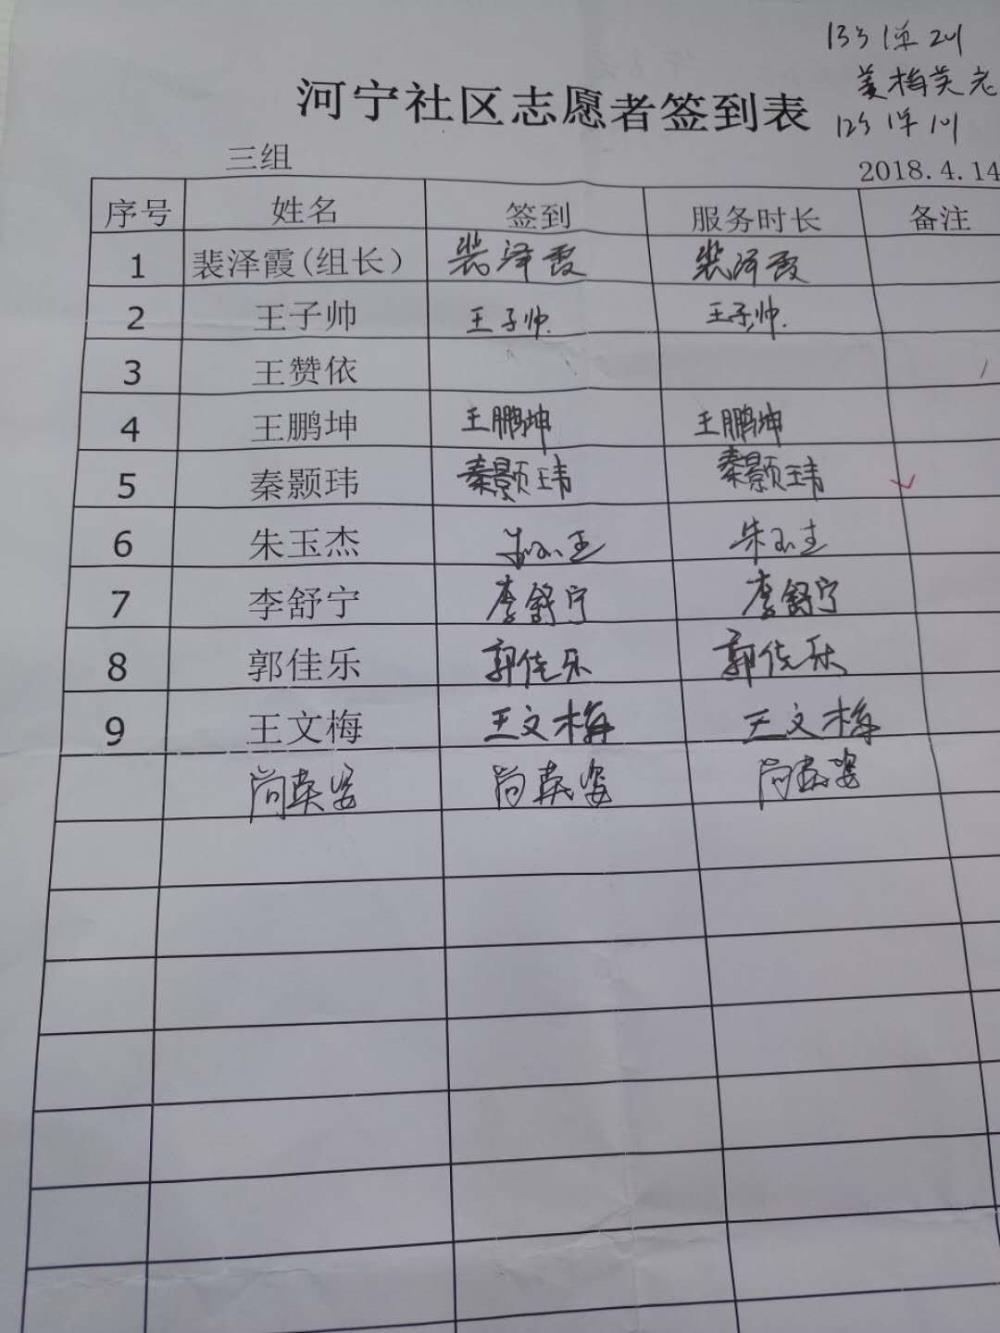 河宁社区志愿者签到表
三组
2018.4.14
序号 姓名 签到 服务时长 备注
1 裴泽霞(组长) 裴泽霞 裴泽霞
2 王子帅 王子帅. 王子帅.
3 王赞依
4 王鹏坤 王鹏坤 王鹏坤
5 秦颢玮 秦颢玮 秦颢玮
6 朱玉杰
7 李舒宁 李舒宁 李舒宁
8 郭佳乐 郭佳乐 郭佳乐
9 王文梅 王文梅 王文梅
尚英姿 尚英姿 尚英姿